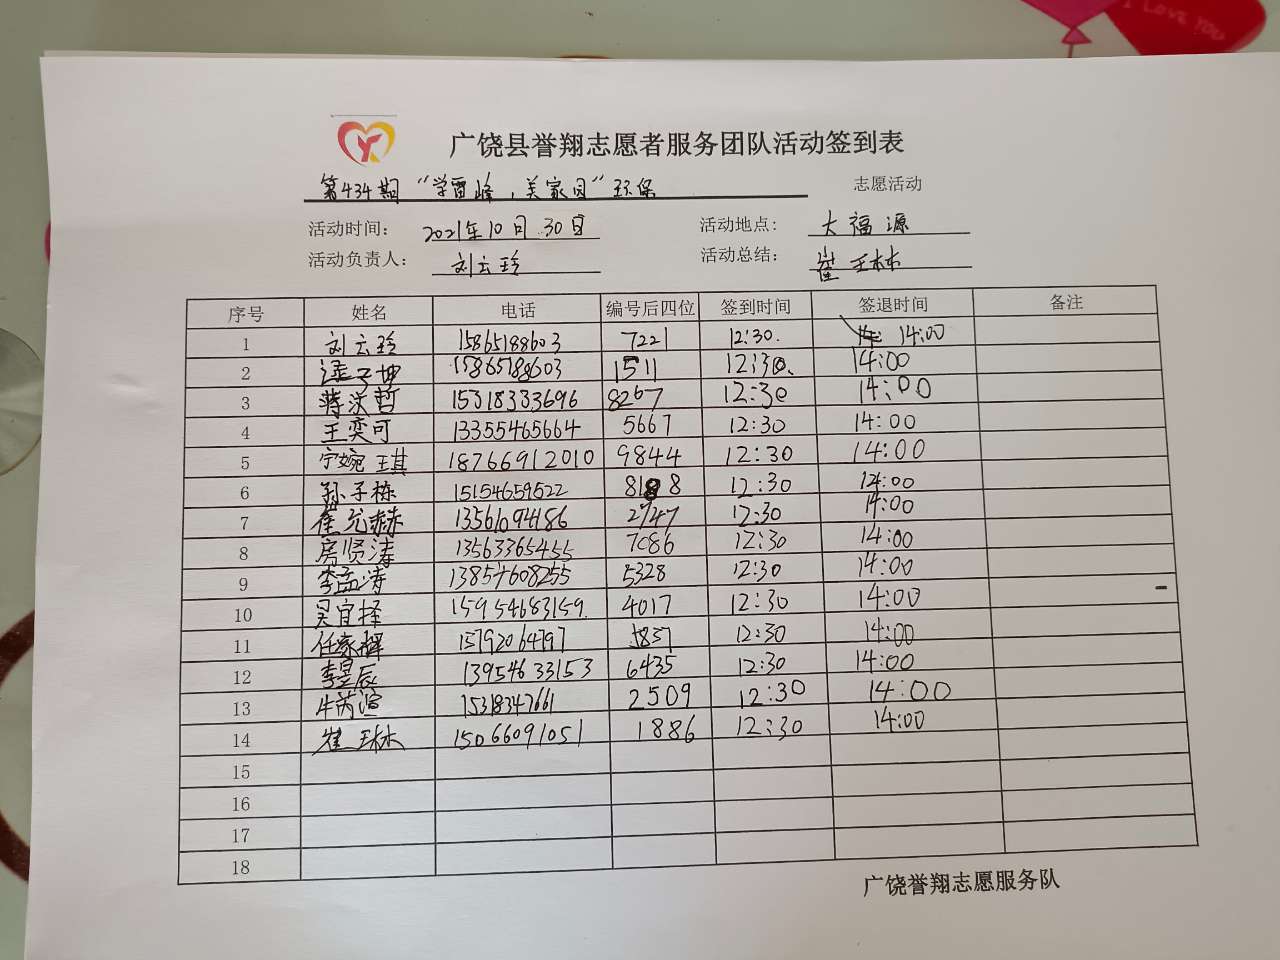 I LOVE YOU
广饶县誉翔志愿者服务团队活动签到表
第434期“学雷峰，美家园”环保 志愿活动
活动时间： 2021年10月30日 活动地点: 大福源
活动负责人： 刘云玲 活动总结： 崔玉林
序号 姓名 电话 编号后四位 签到时间 签退时间 备注
1 刘云玲 15865188603 7221 12:30. 14:00
2 子坤 15865188603 1511 12:30. 14:00
3 蒋沃哲 15318333696 8267 12:30 14:00
4 王奕可 13355465664 5667 12:30 14:00
5 宁婉琪 18766912010 9844 12:30 14:00
6 孙子栋 15154659522 8188 12:30 14:00
7 崔允赫 13561094186 2747 12:30 14:00
8 房贤涛 13563365455 7086 12:30 14:00
9 李孟涛 13854608255 5328 12:30 14:00
10 吴宜择 15954683159 4017 12:30 14:00
11 任家辉 13792064797 12:30 14:00
12 李昱辰 13954633153 6435 12:30 14:00
13 牛芮萱 15318347661 2509 12:30 14:00
14 崔玉林 15066091051 1886 12:30 14:00
15
16
17
18
广饶誉翔志愿服务队